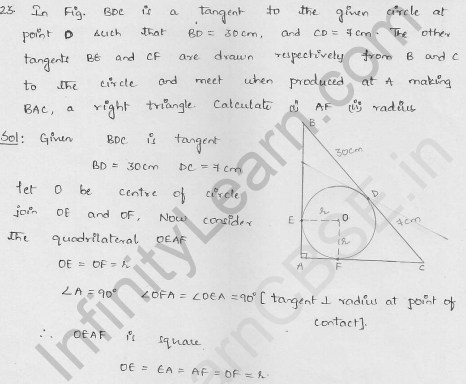 23. In Fig. BDC is a tangent to the given circle at
point D such that BD = 30cm, and CD = 7cm. The other
tangents BE and CF are drawn respectively from B and C
to the circle and meet when produced at A making
BAC, a right triangle Calculate (i) AF (ii) radius
Sol: Given BDC is tangent
BD = 30cm DC = 7cm
let O be centre of circle
join OE and OF, Now consider
the quadrilateral OEAF
OE = OF = r
∠A = 90° ∠OFA = ∠OEA = 90° [tangent ⊥ radius at point of
contact].
∴ OEAF is square
OE = EA = AF = OF = r.
B
30cm
D
E
r
O
7cm
r
A
F
C
InfinityLearn.com
LearnCBSE.in